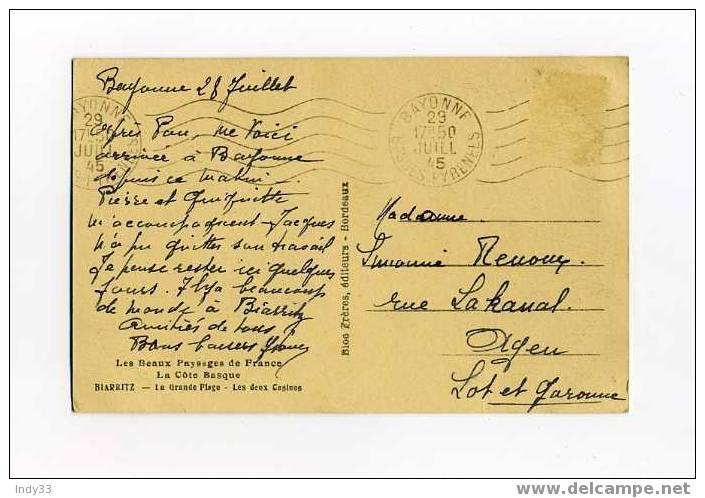 Bayonne 28 Juillet
BAYONNE
29
17H50
JUILL
45
BSSES PYRENEES
BAYONNE
29
17H50
JUILL
45
BSSES PYRENEES
Après Pau, me voici
arrivée à Bayonne
depuis ce matin.
Pierre et Guiguitte
m'accompagnent - Jacques
n'a pu quitter son travail
Je pense rester ici quelques
jours. Il y a beaucoup
de monde à Biarritz
Amitiés de tous
Bons baisers
Les Beaux Paysages de France
La Côte Basque
BIARRITZ — La Grande Plage - Les deux Casinos
Bloc Frères, éditeurs - Bordeaux
Madame
Simonne Renoux.
rue Lakanal.
Agen
Lot et Garonne
Indy33
www.delcampe.net